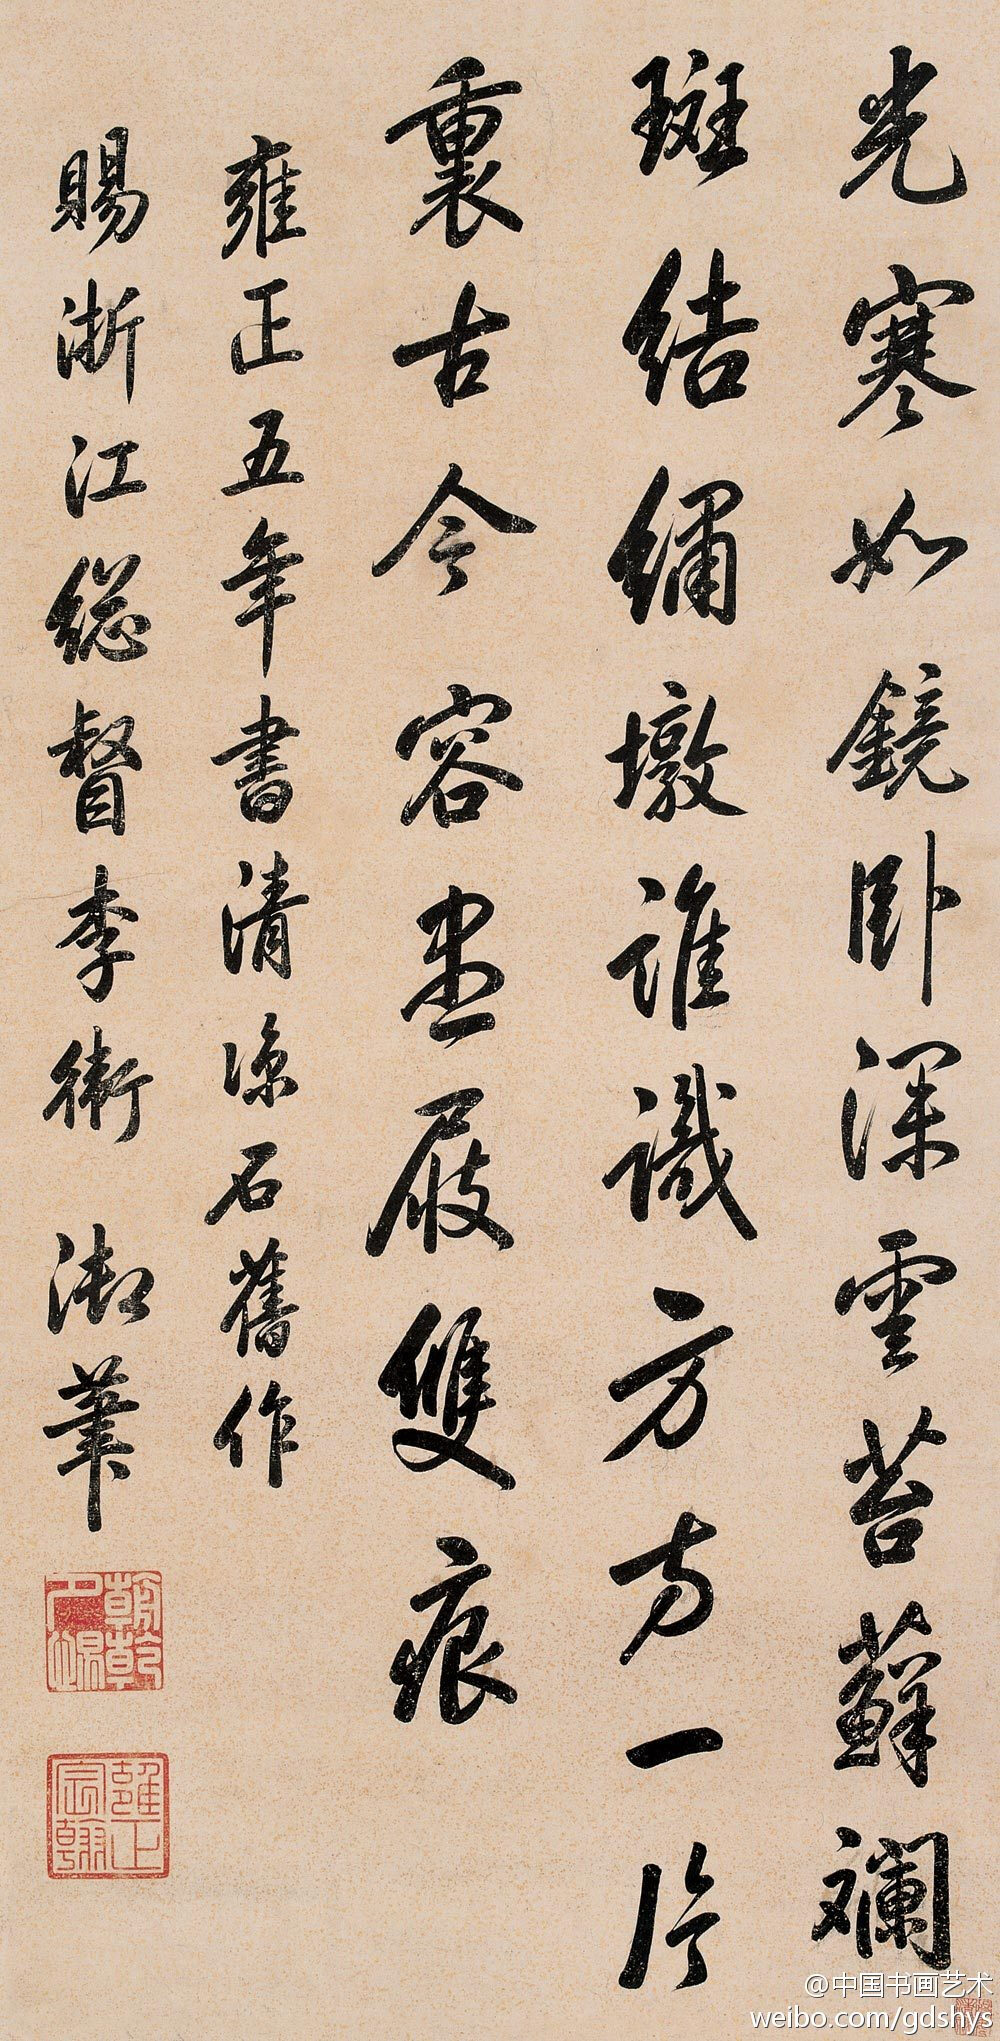 光寒如鏡卧深雲苔蘚斓
斑結繡墩誰識方方一片
裏古今容盡屐雙痕
雍正五年書清凉石舊作
賜浙江総督李衛 御筆
朝乾夕惕
雍正宸翰
@中国书画艺术
weibo.com/gdshys